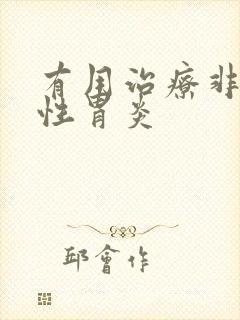 有国治疗非
性胃炎
邱會作